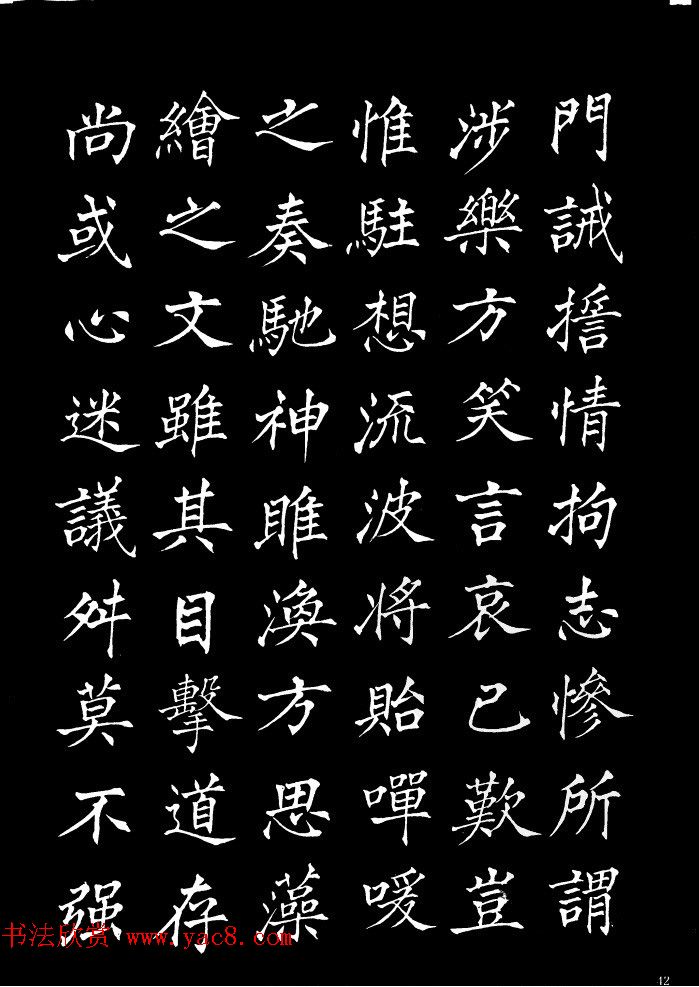 門誡擔情拘志慘所謂
涉樂方笑言哀已歎豈
惟駐想流波將貽嘽喛
之奏馳神雎渙方思藻
繪之文雖其目擊道存
尚或心迷議舛莫不强
书法欣赏 www.yac8.com
42